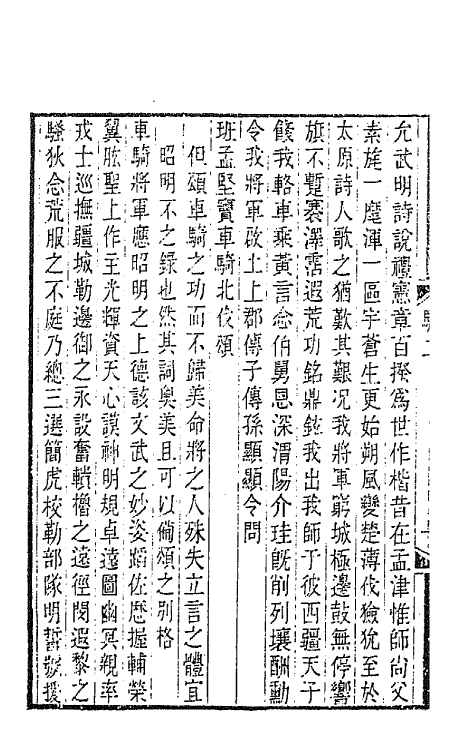 允武明詩說禮憲章百揆為世作楷昔在孟津惟師尚父
素旄一麾渾一區宇蒼生更始朔風變楚薄伐獫狁至於
太原詩人歌之猶歎其艱况我將軍窮城極邊鼓無停響
旗不蹔褰澤霑遐荒功銘鼎鉉我出我師于彼西疆天子
餞我輅車乘黃言念伯舅恩深渭陽介珪旣削列壤酬勳
令我將軍啟土上郡傳子傳孫顯顯令問
班孟堅竇車騎北伐頌
但頌車騎之功而不歸美命將之人殊失立言之體宜
昭明不之錄也然其詞奥美且可以備頌之别格
車騎將軍應昭明之上德該文武之妙姿蹈佐歷握輔榮
翼肱聖上作主光輝資天心謨神明規卓遠圖幽冥親率
戎士巡撫疆城勒邊御之永設奮轒櫓之遠徑閔遐黎之
騷狄念荒服之不庭乃總三選簡虎校勒部隊明誓號援